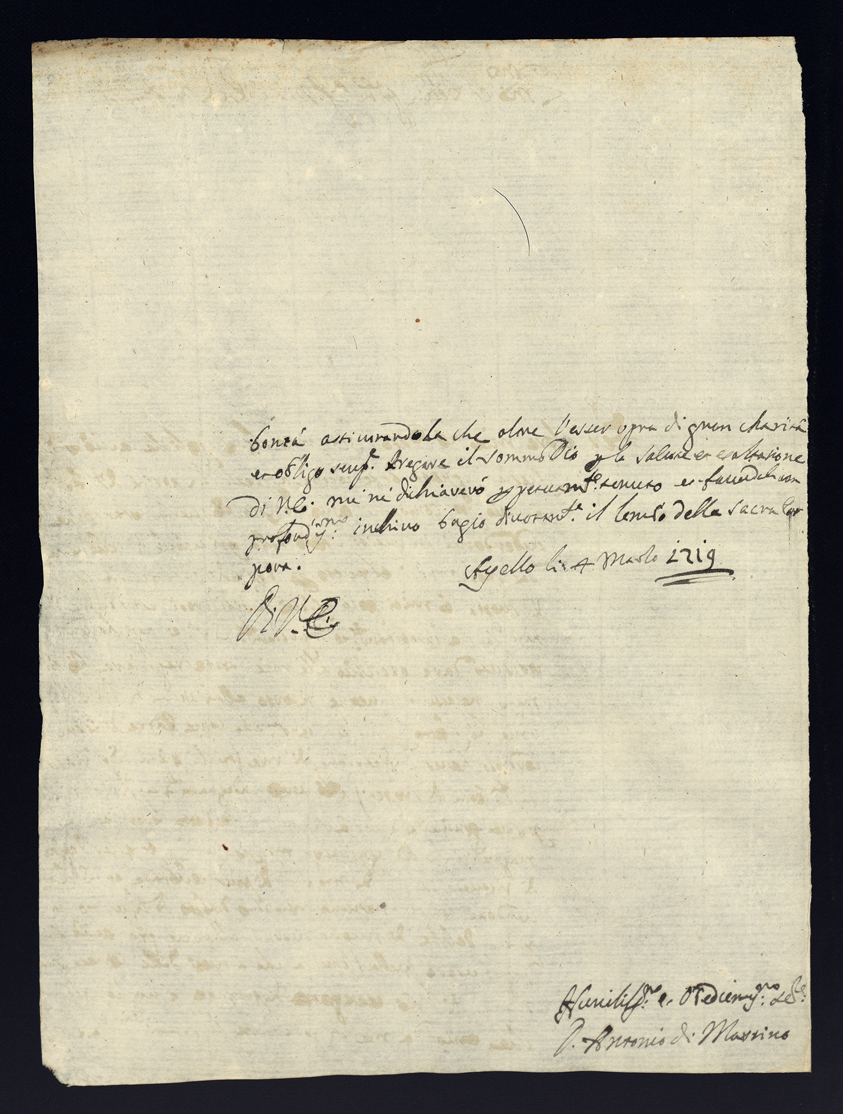 bontà assicurandola che oltre l'esser opra di gran charità
et obligo semp.e pregare il sommo Dio p la salute et esaltasione
di V.E. mi ne dichiarerò tenuto et
profond.mo inchino bagio divotam.te il lembo della sacra Por
pora.
Ayello li 4 Marso 1719
Di V.E.
Humiliss.mo e Obedien.mo
D. Antonio di Massino